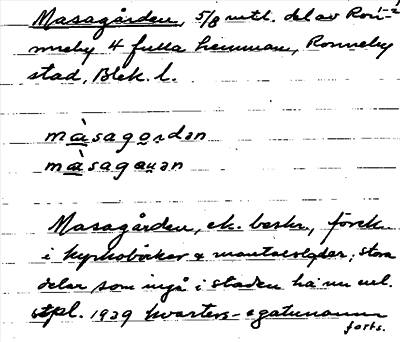 Masagården, 5/8 mtl. del av Ron-
neby 4 fulla hemman, Ronneby
stad, Blek. l.
màsagordən
màsagaɯən
Masagården, ek. beskr., förek.
i kyrkoböcker & mantalslgder; stora
delar som ingå i staden ha nu enl.
stpl. 1929 kvarters- & gatunamn
forts.